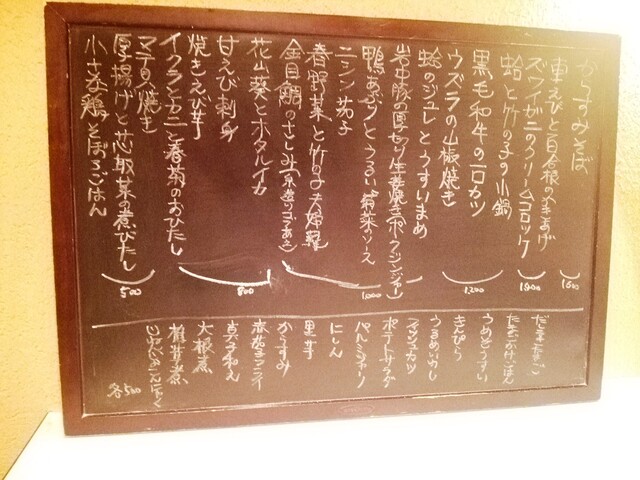 からすみそば
車えびと百合根のかきあげ
ズワイガニのクリームコロッケ
蛤と竹の子の小鍋
黒毛和牛の一口カツ
ウズラの山椒焼き
蛤のジュレとうすいまめ
岩中豚の厚切り生姜焼き(ポークジンジャー)
鴨あぶりとうるい 菜ソース
ニシン茄子
春野菜と竹の子
金目鯛のさしみ
花山葵とホタルイカ
甘えび刺身
焼きえび芋
イクラとカニと春菊のおひたし
マテ貝焼き
厚揚げと芯取菜の煮びたし
小さな鶏そぼろごはん
1600
1800
1200
1000
800
500
だしまきたまご
たまごかけごはん
うめとうすい
きんぴら
うるめいわし
メンチカツ
ポテトサラダ
パルミジャーノ
にしん
里芋
からすみ
大根煮
椎茸煮
各500